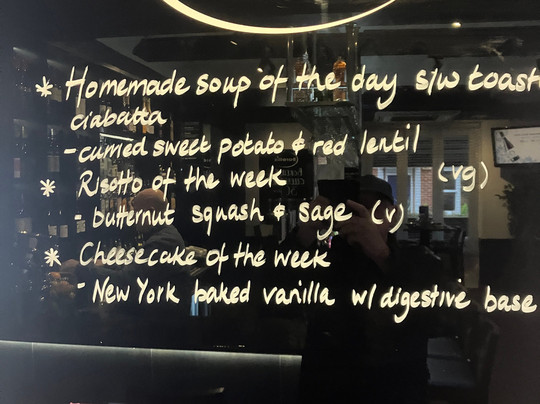 * Homemade soup of the day s/w toast
ciabatta
- curried sweet potato & red lentil
(vg)
* Risotto of the week
- butternut squash & sage (v)
* Cheesecake of the week
- New York baked vanilla w/ digestive base